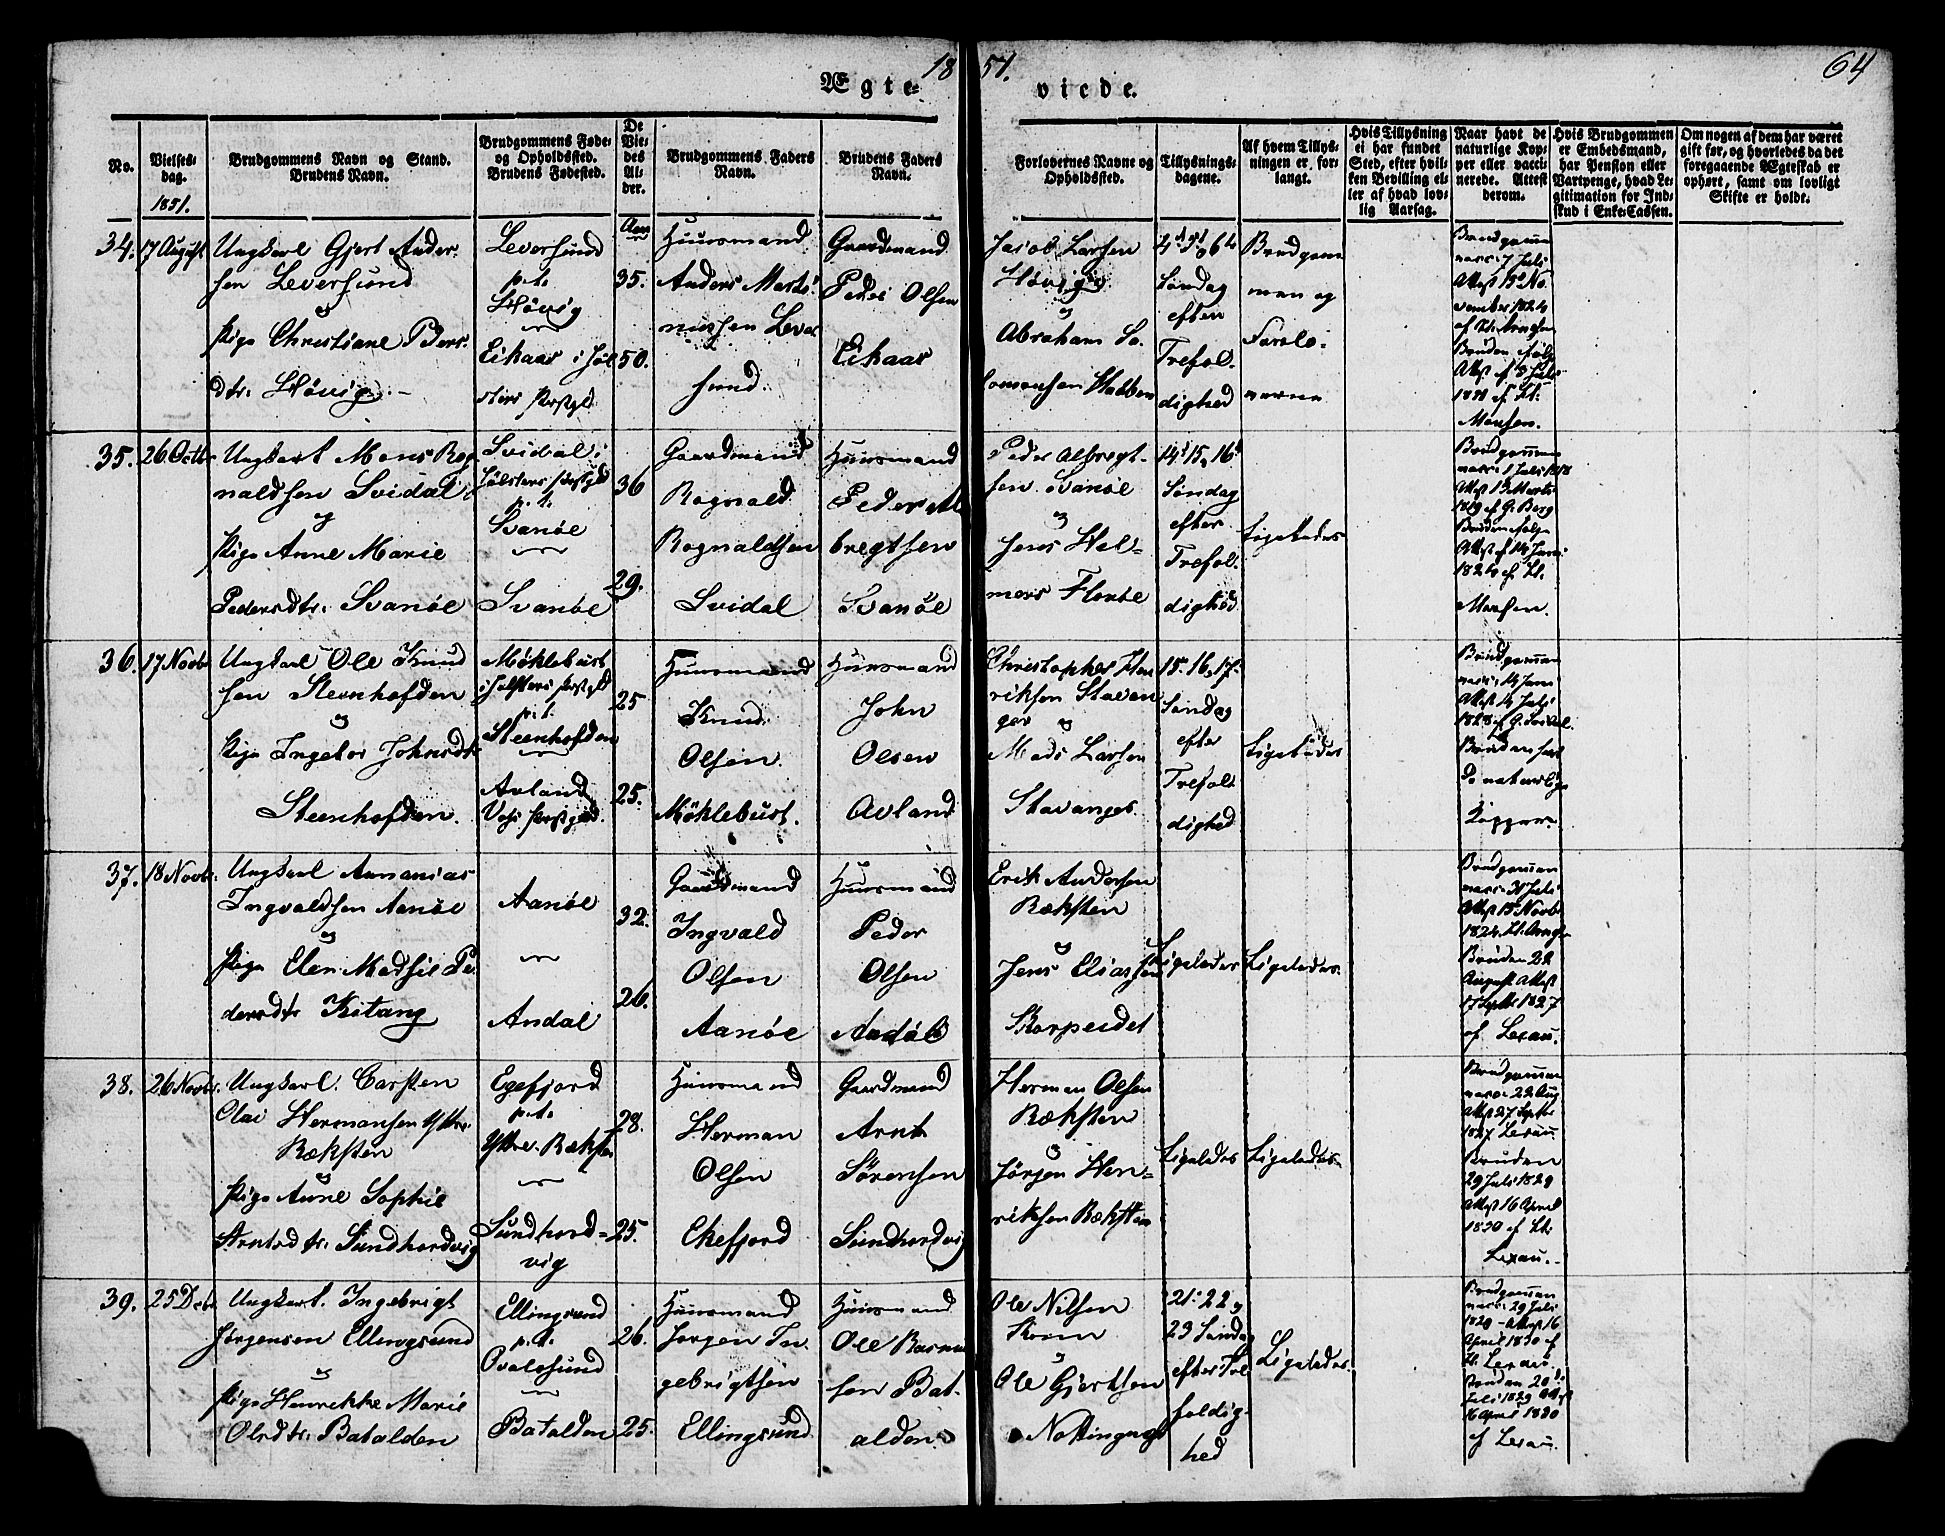 1851.
64
Ægteviede.
No.
Vielsesdag.
1851.
Brudgommens Navn og Stand.
Brudens Navn.
Brudgommens Føde-
og Opholdssted.
Brudens Fødested.
De
Vie-
des
Al-
der.
Brudgommens Faders
Navn.
Brudens Faders
Navn.
Forlovernes Navne og
Opholdssted.
Tillysnings-
dagene.
Af hvem Tillys-
ningen er for-
langt.
Hvis Tillysning
ei har fundet
Sted, efter hvil-
ken Bevilling el-
ler af hvad lov-
lig Aarsag.
Naar havt de
naturlige Kop-
per eller vacci-
nerede. Attest
derom.
Hvis Brudgommen
er Embedsmand,
har Pension eller
Vartpenge, hvad Le-
gitimation for Ind-
skud i Enke-Cassen.
Om nogen af dem har været
gift før, og hvorledes da det
foregaaende Ægteskab er
ophørt, samt om lovligt
Skifte er holdt.
34.
17 August
Ungkarl Gjert Ander-
sen Leversund
og
Pige Christiane Peders-
dtr. Høvig
Leversund
p.t.
Høvig
Eikaas i Jøl-
sters Præstgld
Aar
35.
50.
Huusmand
Anders Marti-
nussen Lever
sund
Gaardmand
Peder Olsen
Eikaas
Jacob Larsen
Høvig
og
Abraham So-
lomonsen Stabben
4d 5d 6d
Søndag
efter
Trefol-
dighed
Brudgom-
men og
Forlo-
verne
Brudgommen
vacc. 7 Juli
Attest 15 No
vember 1824
af
Bruden ifølge
Attest af 8 Juli
af Kl.
Monsen.
35.
26 Octb
Ungkarl Mons Rog
naldsen Svidal
og
Pige Anne Marie
Pedersdtr. Svanöe
Svidal i
Jølsters Præstgld
p.t.
Svanöe
Svanöe
36
29.
Gaardmand
Rognald
Rognaldsen
Svidal
Huusmand
Peder Al
bregtsen
Svanöe
Peder Albregt-
sen Svanöe
og
Jens Hel-
mers Floröe
14d 15d 16d
Søndag
efter
Trefol-
dighed
Ligeledes
Brudgommen
vacc. 1 Juli 1818
Attest 13 Marts
1819 af G. Berg
Bruden ifølge
Attest af 14 Juni
1824 af Kl.
Monsen.
36.
17 Novb
Ungkarl Ole Knud
sen Steenhofden
og
Pige Ingebor Johnsdtr
Steenhofden.
Møklebust
i Jølsters Præstgld
p.t.
Steenhofden
Avland
Præstgield.
25
25.
Huusmand
Knud
Olsen
Møklebust.
Huusmand
John
Olsen
Avland
Christopher Hen
riksen Stavan
ger og
Mads Larsen
Stavanger.
15. 16. 17.
Søndag
efter
Trefol-
dighed
Ligeledes
Brudgommen
vacc. 14 Juni
Attest 14 Juli
1828 af G.
Bruden havt
de naturlige
Kopper.
37.
18 Novb.
Ungkarl Annanias
Ingvaldsen Aanöe
og
Pige Elen Madsie Pe
dersdtr Kitang
Aanöe
Andal
32.
26.
Gaardmand
Ingvald
Olsen
Aanöe
Huusmand
Peder
Olsen
Andal
Erik Andersen
Ræksten
og
Jens Eliassen
Skorpeidet
Ligeledes
Ligeledes.
Brudgommen
vacc. Juli
Attest 15 Novb
1824.
Bruden 22
August Attest
17 Septbr 1827
af Lexau.
38.
26 Novbr.
Ungkarl. Carsten
Olai Hermansen Yttre-
Ræksten
Pige Anne Sophie
Arntsdtr. Sundhordvig
Egefjord
p.t.
Yttre-Ræksten
Sundhord-
vig
28.
25.
Huusmand
Herman
Olsen
Ekefjord
Gaardmand
Arnt
Sörensen
Sundhordvig
Herman Olsen
Ræksten
og
Jørgen Hen-
riksen Ræksten
Ligeledes
Ligeledes.
Brudgommen
vacc. 22 Aug
Attest 27 Septbr
1827 Lexau.
Bruden
29 Juli 1829
Attest 16 April
1830 af Kl.
Lexau.
39.
25 Decb
Ungkarl. Ingebrigt
Jørgensen Ellingsund
og
Pige Henrikke Marie
Olsdtr. Batalden
Ellingsund
p.t.
Qvalesund
Batalden
26.
25.
Huusmand
Jørgen In-
gebrigtsen
Ellingsund
Huusmand
Ole Rasmu
sen Bat-
alden
Ole Nilsen
Skorn
og
Ole Gjertsen
Nottingnæs
21. 22. og
23 Søndag
efter Tre
foldig-
hed
Ligeledes.
Brudgommen
vacc. 29 Juli
1829 - Attest 16
April 1830 af
Kl. Lexau.
Bruden 20de
Juli 1829 Attest
16 April 1830
af Lexau.